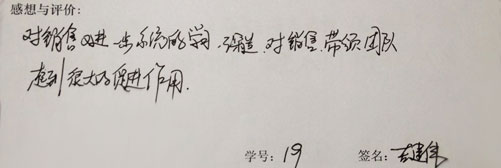 感想与评价:
对销售进一步系统的学习 对销售、带领团队
起到很大的促进作用.
学号: 19 签名: